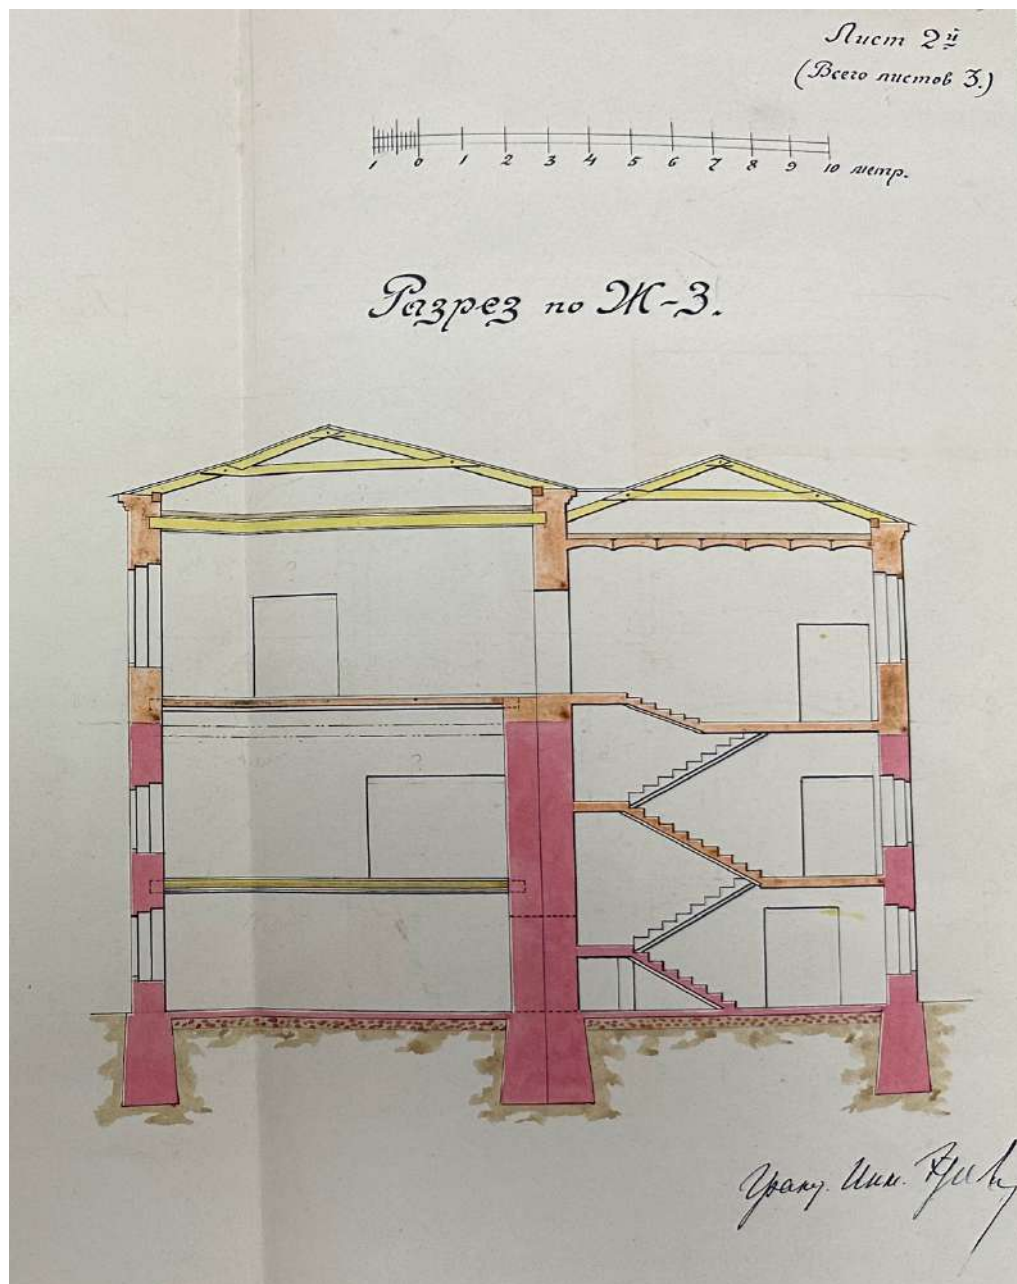 Лист 2й
(Всего листов 3.)
1 0 1 2 3 4 5 6 7 8 9 10 метр.
Разрез по Ж-З.
Гражд. Инж.